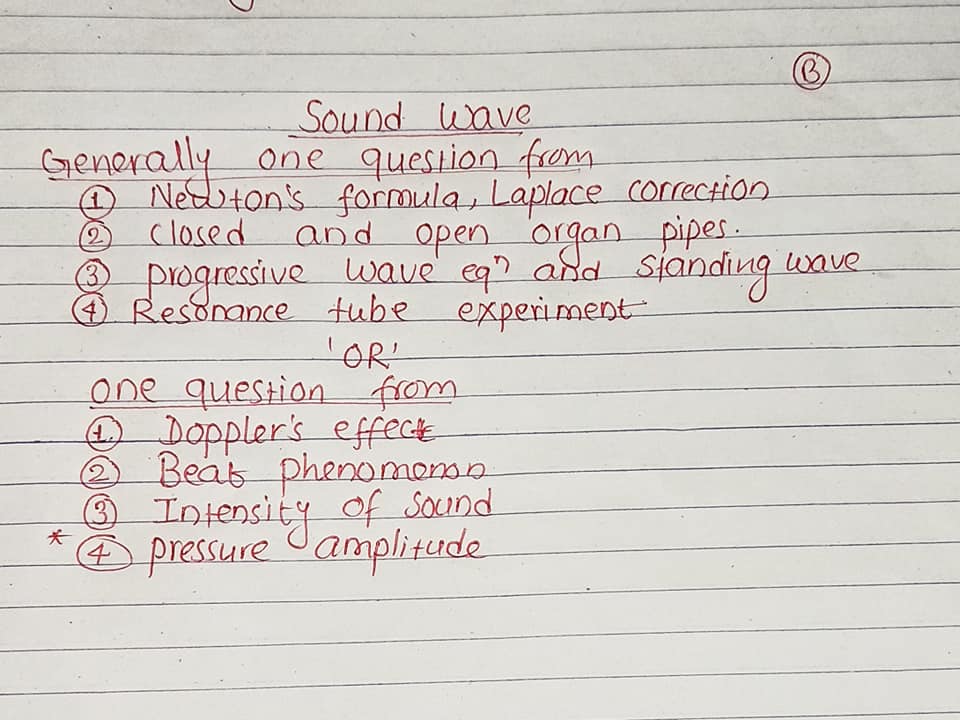 B
Sound wave
Generally one question from
① Newton's formula, Laplace correction
② closed and open organ pipes.
③ progressive wave eqⁿ and standing wave
④ Resonance tube experiment
'OR'
one question from
①. Doppler's effect
② Beats phenomenon
③ Intensity of sound
* ④ pressure amplitude